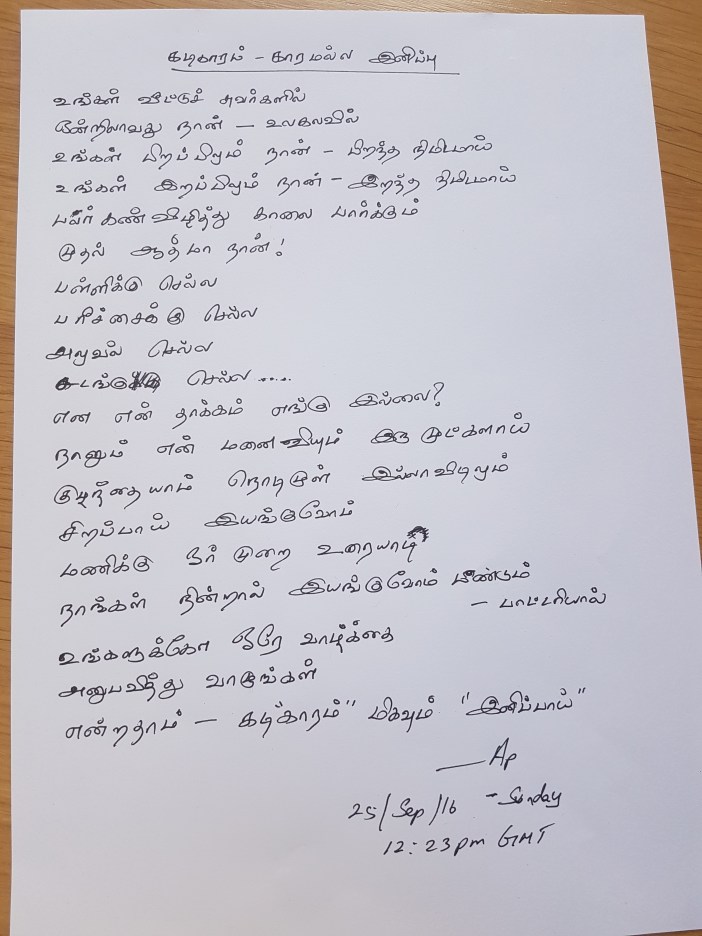 கடிகாரம் - காரமல்ல இனிப்பு
உங்கள் வீட்டுச் சுவர்களில்
ஒன்றிலாவது நான் - உலகளவில்
உங்கள் பிறப்பிலும் நான் - பிறந்த நிமிடமாய்
உங்கள் இறப்பிலும் நான் - இறந்த நிமிடமாய்
பலர் கண் விழித்து காலை பார்க்கும்
முதல் ஆத்மா நான்!
பள்ளிக்கு செல்ல
பரிச்சைக்கு செல்ல
அலுவல் செல்ல
செல்ல .....
என என் தாக்கம் எங்கு இல்லை?
நானும் என் மனைவியும் இரு முட்களாய்
குழந்தையாம் நொடிமுள் இல்லாவிடிலும்
சிறப்பாய் இயங்குவோம்
மணிக்கு ஓர் முறை உரையாடி
நாங்கள் நின்றால் இயங்குவோம் மீண்டும்
- பாட்டரியால்
உங்களுக்கோ ஒரே வாழ்க்கை
அனுபவித்து வாழுங்கள்
என்றதாம் - கடிகாரம்" மிகவும் "இனிப்பாய்"
Ap
25/Sep/16 - Sunday
12:23pm GMT